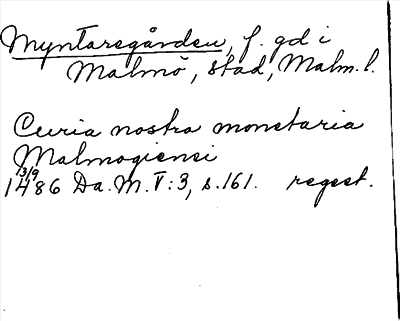 Myntaregården, f. gd i
Malmö, stad, Malm. l.
Curia nostra monetaria
Malmogiensi
13/9
1486 Da. M. V:3, s. 161. regest.